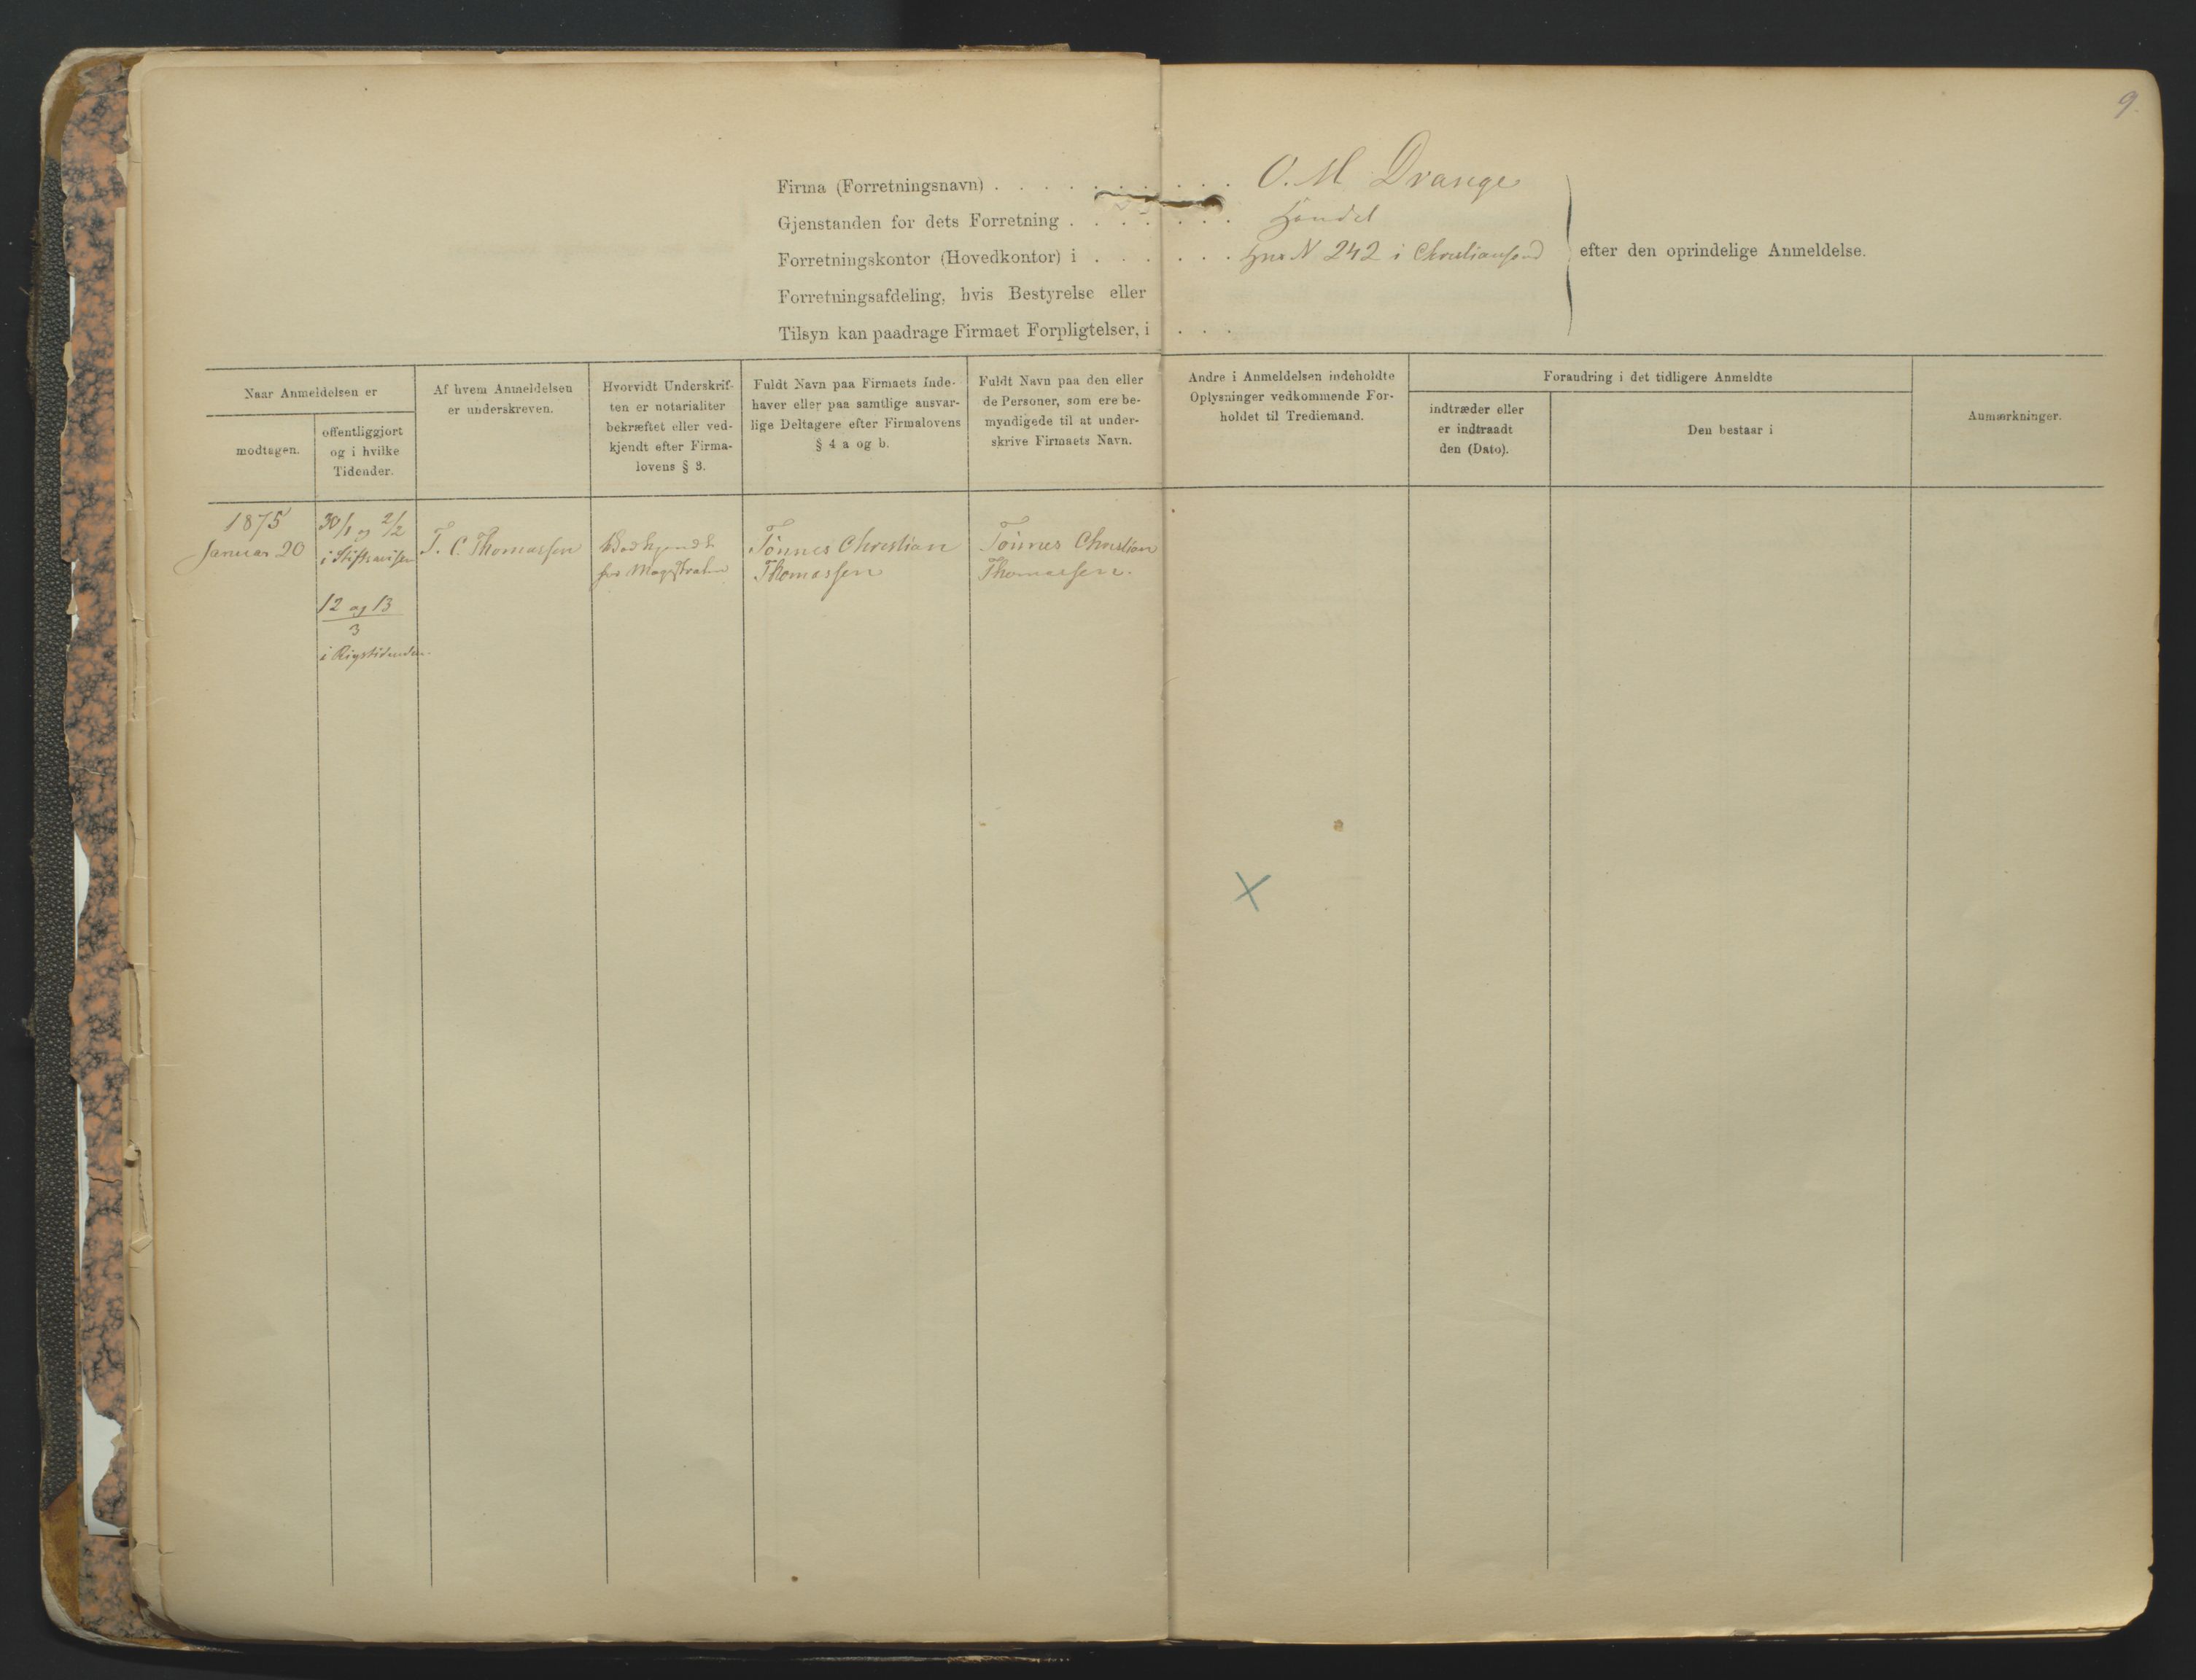 9.
Firma (Forretningsnavn) . . . . . . . . . . O. M. Drange
Gjenstanden for dets Forretning . . . . . . . Handel
Forretningskontor (Hovedkontor) i . . . . . . Hus N 242 i Christianssand
efter den oprindelige Anmeldelse.
Forretningsafdeling, hvis Bestyrelse eller
Tilsyn kan paadrage Firmaet Forpligtelser, i . . .
Naar Anmeldelsen er
modtagen.
offentliggjort
og i hvilke
Tidender.
Af hvem Anmeldelsen
er underskreven.
Hvorvidt Underskrif-
ten er notarialiter
bekræftet eller ved-
kjendt efter Firma-
lovens § 3.
Fuldt Navn paa Firmaets Inde-
haver eller paa samtlige ansvar-
lige Deltagere efter Firmalovens
§ 4 a og b.
Fuldt Navn paa den eller
de Personer, som ere be-
myndigede til at under-
skrive Firmaets Navn.
Andre i Anmeldelsen indeholdte
Oplysninger vedkommende For-
holdet til Trediemand.
Forandring i det tidligere Anmeldte
indtræder eller
er indtraadt
den (Dato).
Den bestaar i
Anmærkninger.
1875
Januar 20
30/1 og 2/2
i Stiftsavisen
12 og 13
3
i Rigstidenden.
T. C. Thomassen
Vedkjendt
for Magistraten
Tönnes Christian
Thomassen
Tönnes Christian
Thomassen.